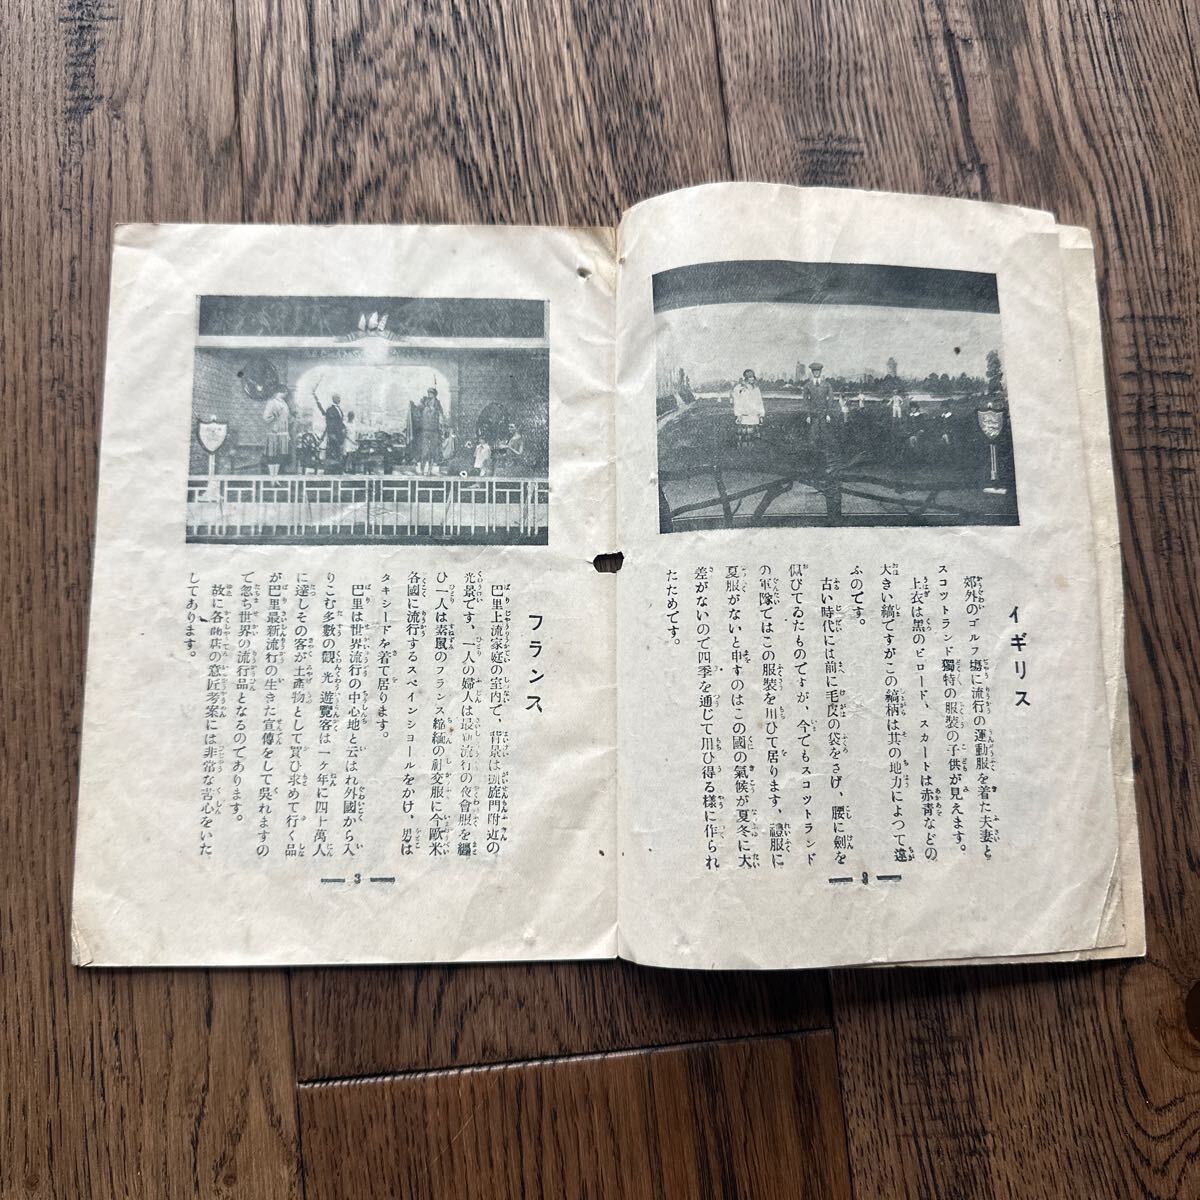 イギリス
郊外のゴルフ場に流行の運動服を着た夫妻と
スコットランド獨特の服装の子供が見えます。
上衣は黒のビロード、スカートは赤青などの
大きい縞ですがこの縞柄は其の地方によつて違
ふのです。
古い時代には前に毛皮の袋をさげ、腰に劍を
佩びてゐたものですが、今でもスコットランド
の軍隊ではこの服装を用ひて居ります、禮服に
夏服がないと申すのはこの國の氣候が夏冬に大
差がないので四季を通じて用ひ得る様に作られ
たためです。
フランス
巴里上流家庭の室内で、背景は凱旋門附近の
光景です、一人の婦人は最新流行の夜會服を纏
ひ一人は素鼠のフランス縮緬の社交服に今歐米
各國に流行するスペインショールをかけ、男は
タキシードを着て居ります。
巴里は世界流行の中心地と云はれ外國から入
りこむ多數の觀光遊覽客は一ヶ年に四十萬人
に達しその客が土產物として買ひ求めて行く品
が巴里最新流行の生きた宣傳をして吳れますの
で忽ち世界の流行品となるのであります。
故に各商店の意匠考案には非常な苦心をいた
してあります。
3